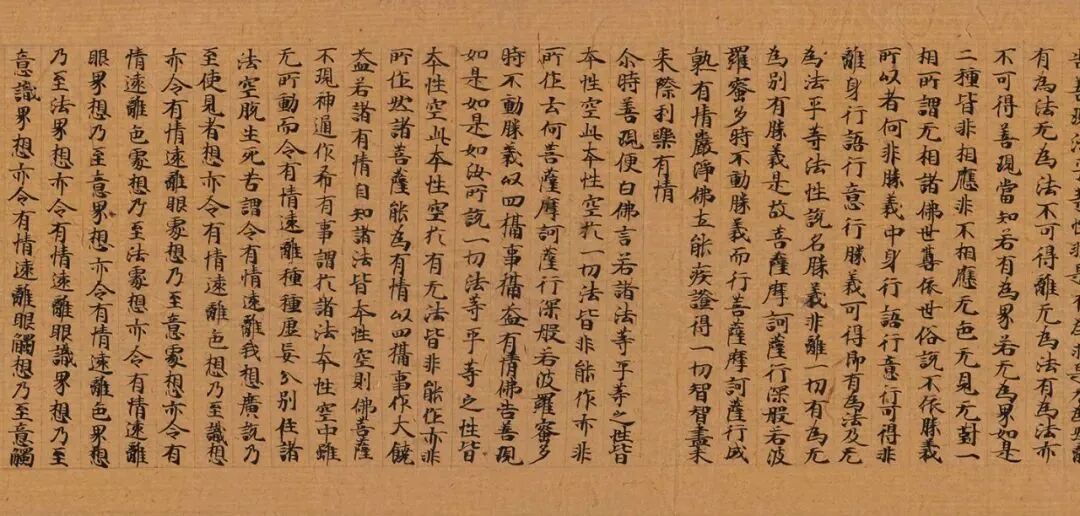 有為法无為法不可得離无為法有為法亦
不可得善現當知若有為界若无為界如是
二種皆非相應非不相應无色无見无對一
相所謂无相諸佛世尊依世俗說不依勝義
所以者何非勝義中身行語行意行可得非
離身行語行意行勝義可得即有為法及无
為法平等法性說名勝義非離一切有為无
為別有勝義是故菩薩摩訶薩行深般若波
羅蜜多時不動勝義而行菩薩摩訶薩行成
熟有情嚴淨佛土能疾證得一切智智盡未
来際利樂有情
尒時善現便白佛言若諸法等平等之性皆
本性空此本性空於一切法皆非能作亦非
所作云何菩薩摩訶薩行深般若波羅蜜多
時不動勝義以四攝事攝益有情佛告善現
如是如是如汝所說一切法等平等之性皆
本性空此本性空於有无法皆非能作亦非
所作然諸菩薩能為有情以四攝事作大饒
益若諸有情自知諸法皆本性空則佛菩薩
不現神通作希有事謂於諸法本性空中雖
无所動而令有情遠離種種虛妄分別住諸
法空脫生死苦謂令有情遠離我想廣說乃
至使見者想亦令有情遠離色想乃至識想
亦令有情遠離眼處想乃至意處想亦令有
情遠離色處想乃至法處想亦令有情遠離
眼界想乃至意界想亦令有情遠離色界想
乃至法界想亦令有情遠離眼識界想乃至
意識界想亦令有情遠離眼觸想乃至意觸